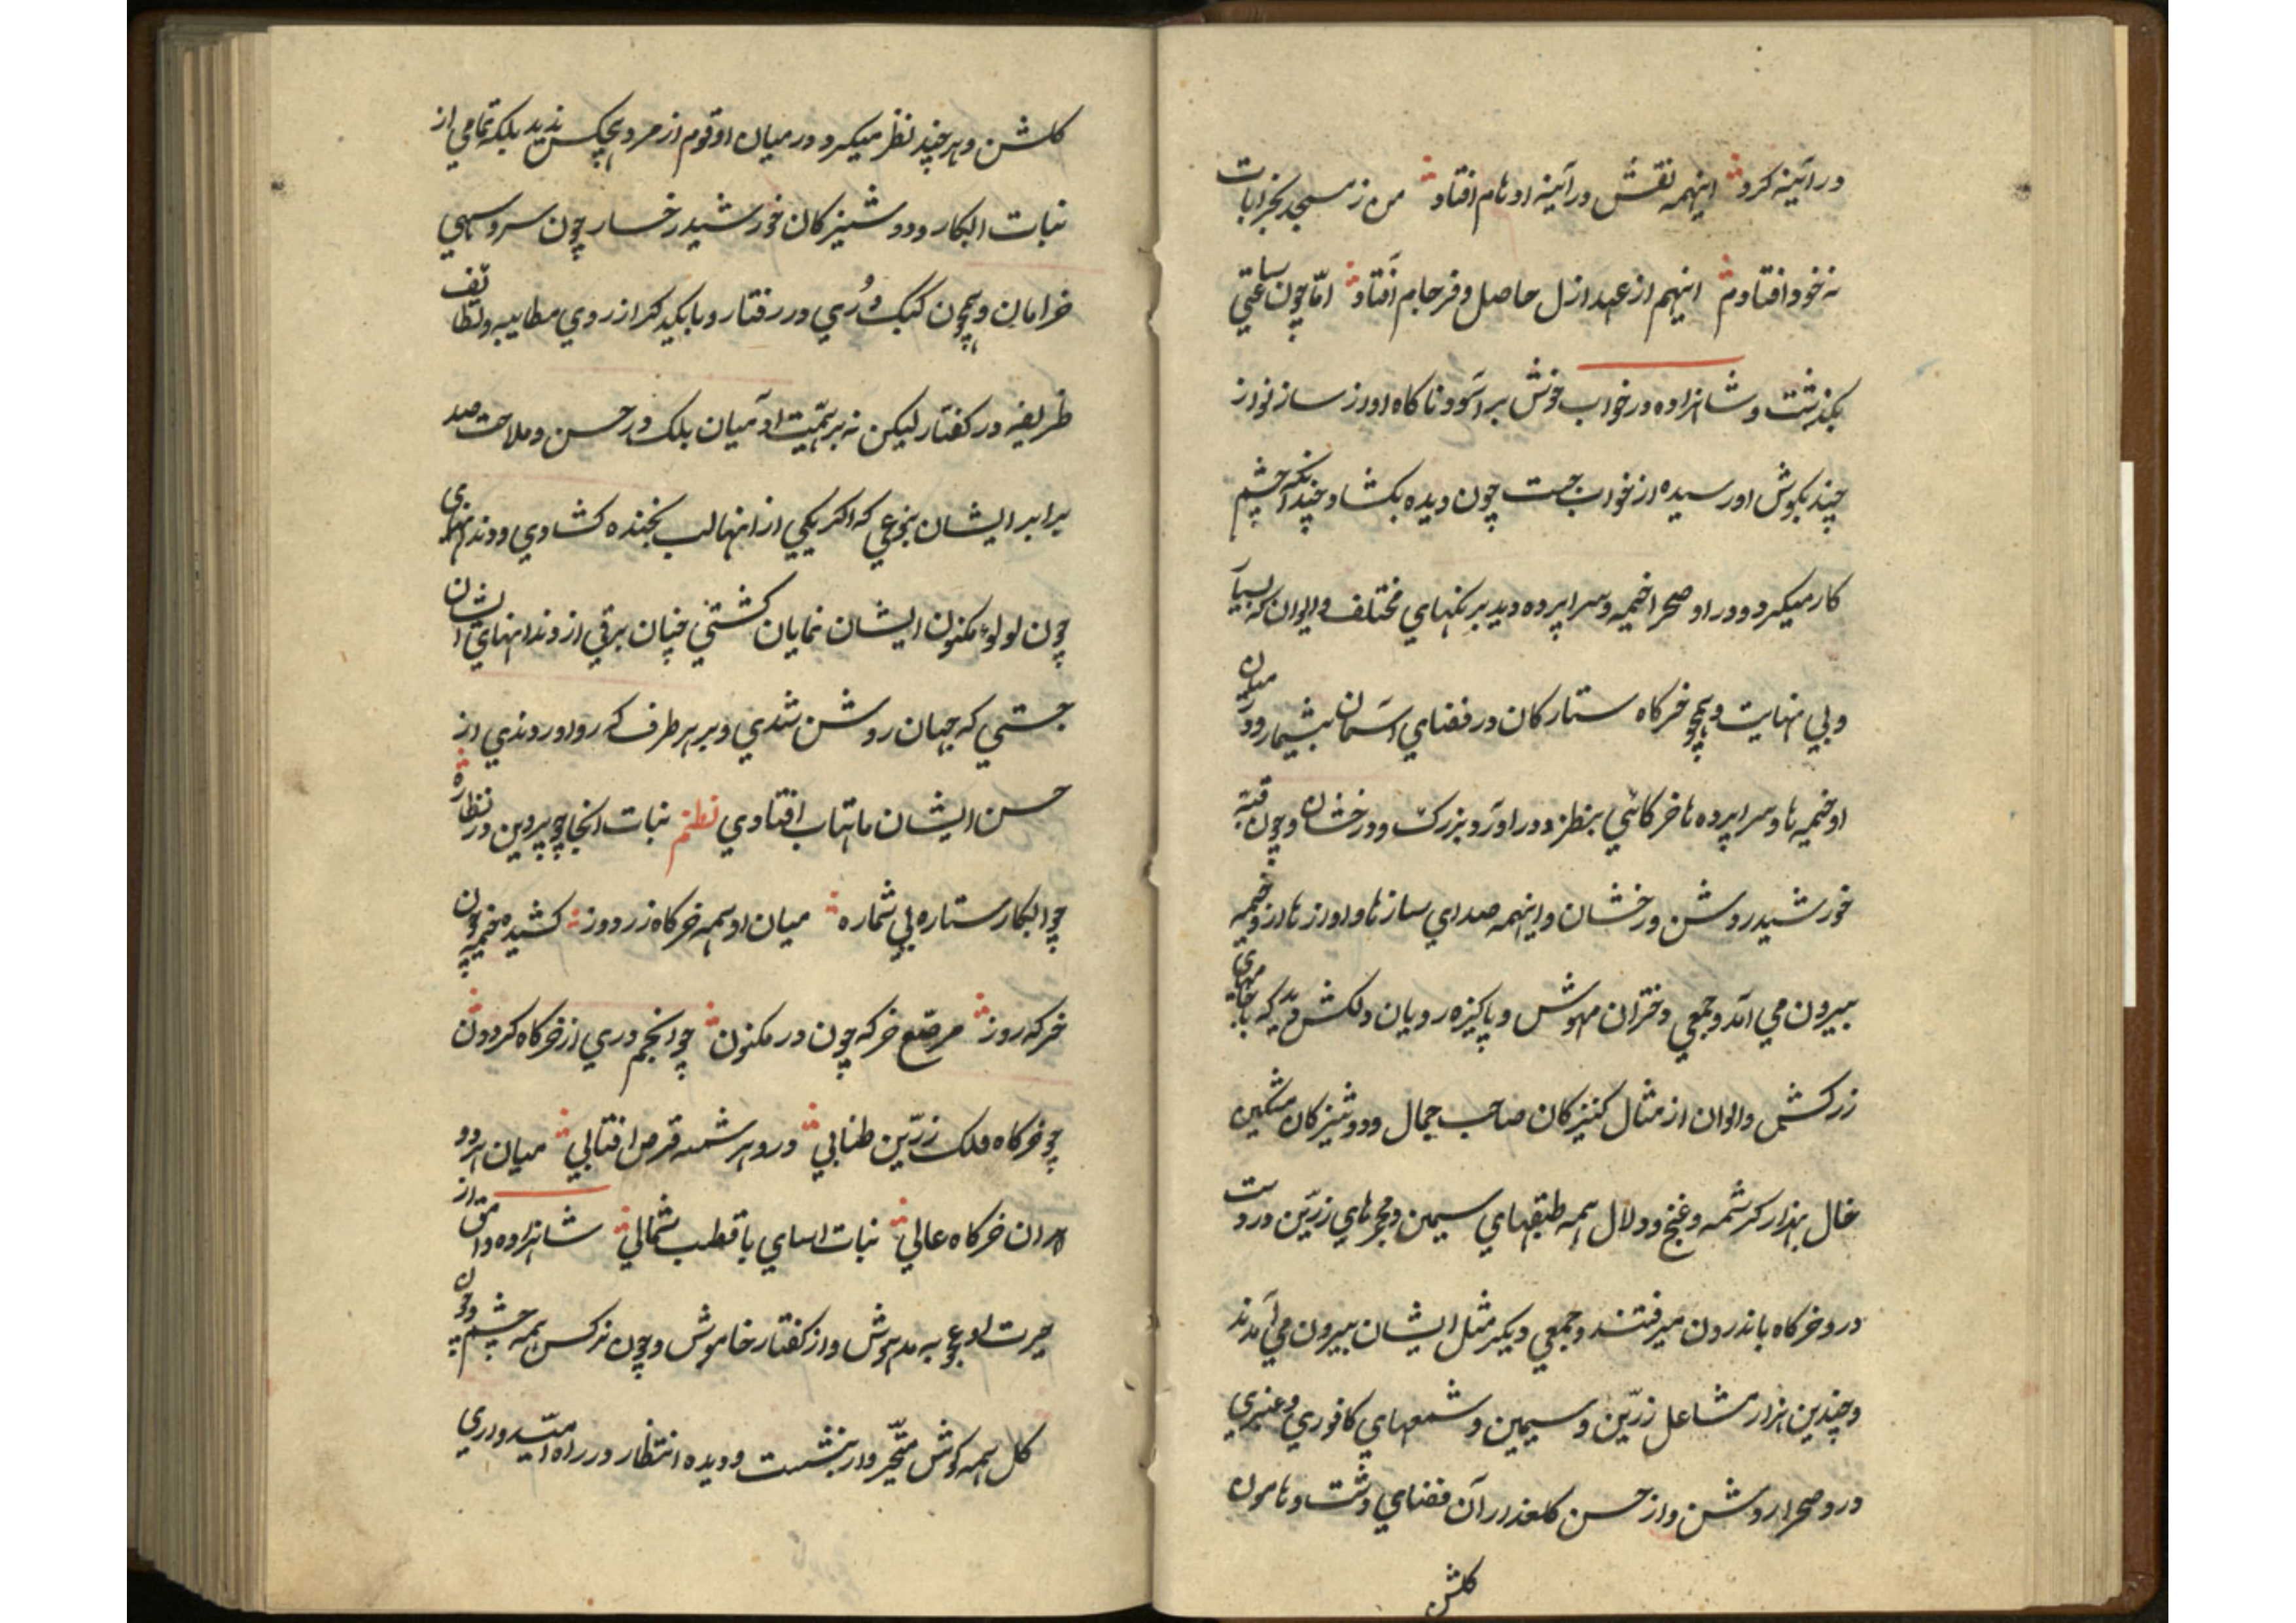 در آئینه کرد اینهمه نقش در آئینه اوهام افتاد من ز مسجد بخرابات
نه خود افتادم اینهم از عهد ازل حاصل و فرجام افتاد امّا چون ساعتی
بگذشت و شاهزاده در خواب خوش برآسود ناگاه اواز ساز نواز
چند بگوش او رسیده از خواب جست چون دیده بکشاد چندانکه چشم
کار میکرد در او صحرا خیمه و سراپرده دید برنکهای مختلف و الوان که بسیار
و بی نهایت و همچو خرکاه ستارکان در فضای آسمان بیشمار و در میان
او خیمه ها و سراپرده ها خرکاهی بنظر در اورد بزرک و درخشان و چون قبّه
خورشید روشن و رخشان و اینهمه صدای سازها و اوازها از و خیمه
بیرون می آمد و جمعی دختران مهوش و پاکیزه رویان دلکش دید که با جامهای
زرکش و الوان از مثال کنیزکان صاحب جمال و دوشیزکان مشکین
خال بهزار کرشمه و غنج و دلال همه طبقهای سیمین و مجمرهای زرّین در دست
در و خرکاه باندرون میرفتند و جمعی دیکر مثل ایشان بیرون می آمدند
و چندین هزار مشاعل زرّین و سیمین و شمعهای کافوری و عنبری
در و صحرا روشن و از حسن کلعذاران فضای دشت و هامون
کلشن
کلشن و هر چند نظر میکرد در میان او قوم از مرد هیچکس ندید بلکه تمامی از
نبات ابکار و دوشیزکان خورشید رخسار چون سرو سهی
خرامان و همچون کبک دُری در رفتار و با یکدیکر از روی مطایبه و لطائف
ظریفه در کفتار لیکن نه برتمیّت ادمیان بلک در حسن و ملاحت صد
برابر ایشان بنوعی که اکر یکی از اینها لب بخنده کشادی و دندانهای
چون لولو مکنون ایشان نمایان کشتی چنان برقی از دندانهای ایشان
جستی که جهان روشن شدی و بر هر طرف که رو اوردندی از
حسن ایشان ماهتاب افتادی نظم نبات انجا چو پروین در نظاره
چو ابکار ستاره بی شماره میان او همه خرکاه زردوز کشیده خیمه چون
خرکه روز مرصّع خرکه چون در مکنون چو انجم دری از خرکاه کردون
چو خرکاه فلک زرّین طنابی در و هر شمسه قرص افتابی میان هر دو
ان خرکاه عالی نبات اسای با قطب شمالی شاهزاده وامق از
حیرت او عجوبه مدهوش و از کفتار خاموش و چون نرکس همه چشم و چون
کل همه کوش متحیّر وار بنشست و دیده انتظار در راه امیدواری